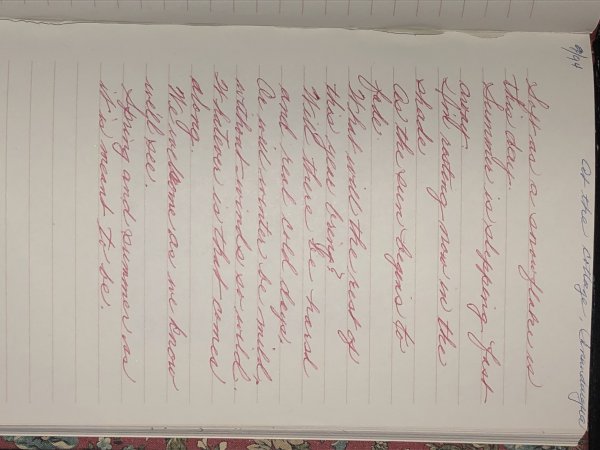 9/94 At the cottage, Canandaigua
Soft as a snowflake is
this day.
Summer is slipping fast
away
Still resting now in the
shade
As the sun begins to
fade.
What will the rest of
this year bring?
Will there be hard
and real cold days
Or will winter be mild,
without winds so wild.
Whatever is that comes
along,
We welcome as we know
we'll see.
Spring and summer as
it's meant to be.